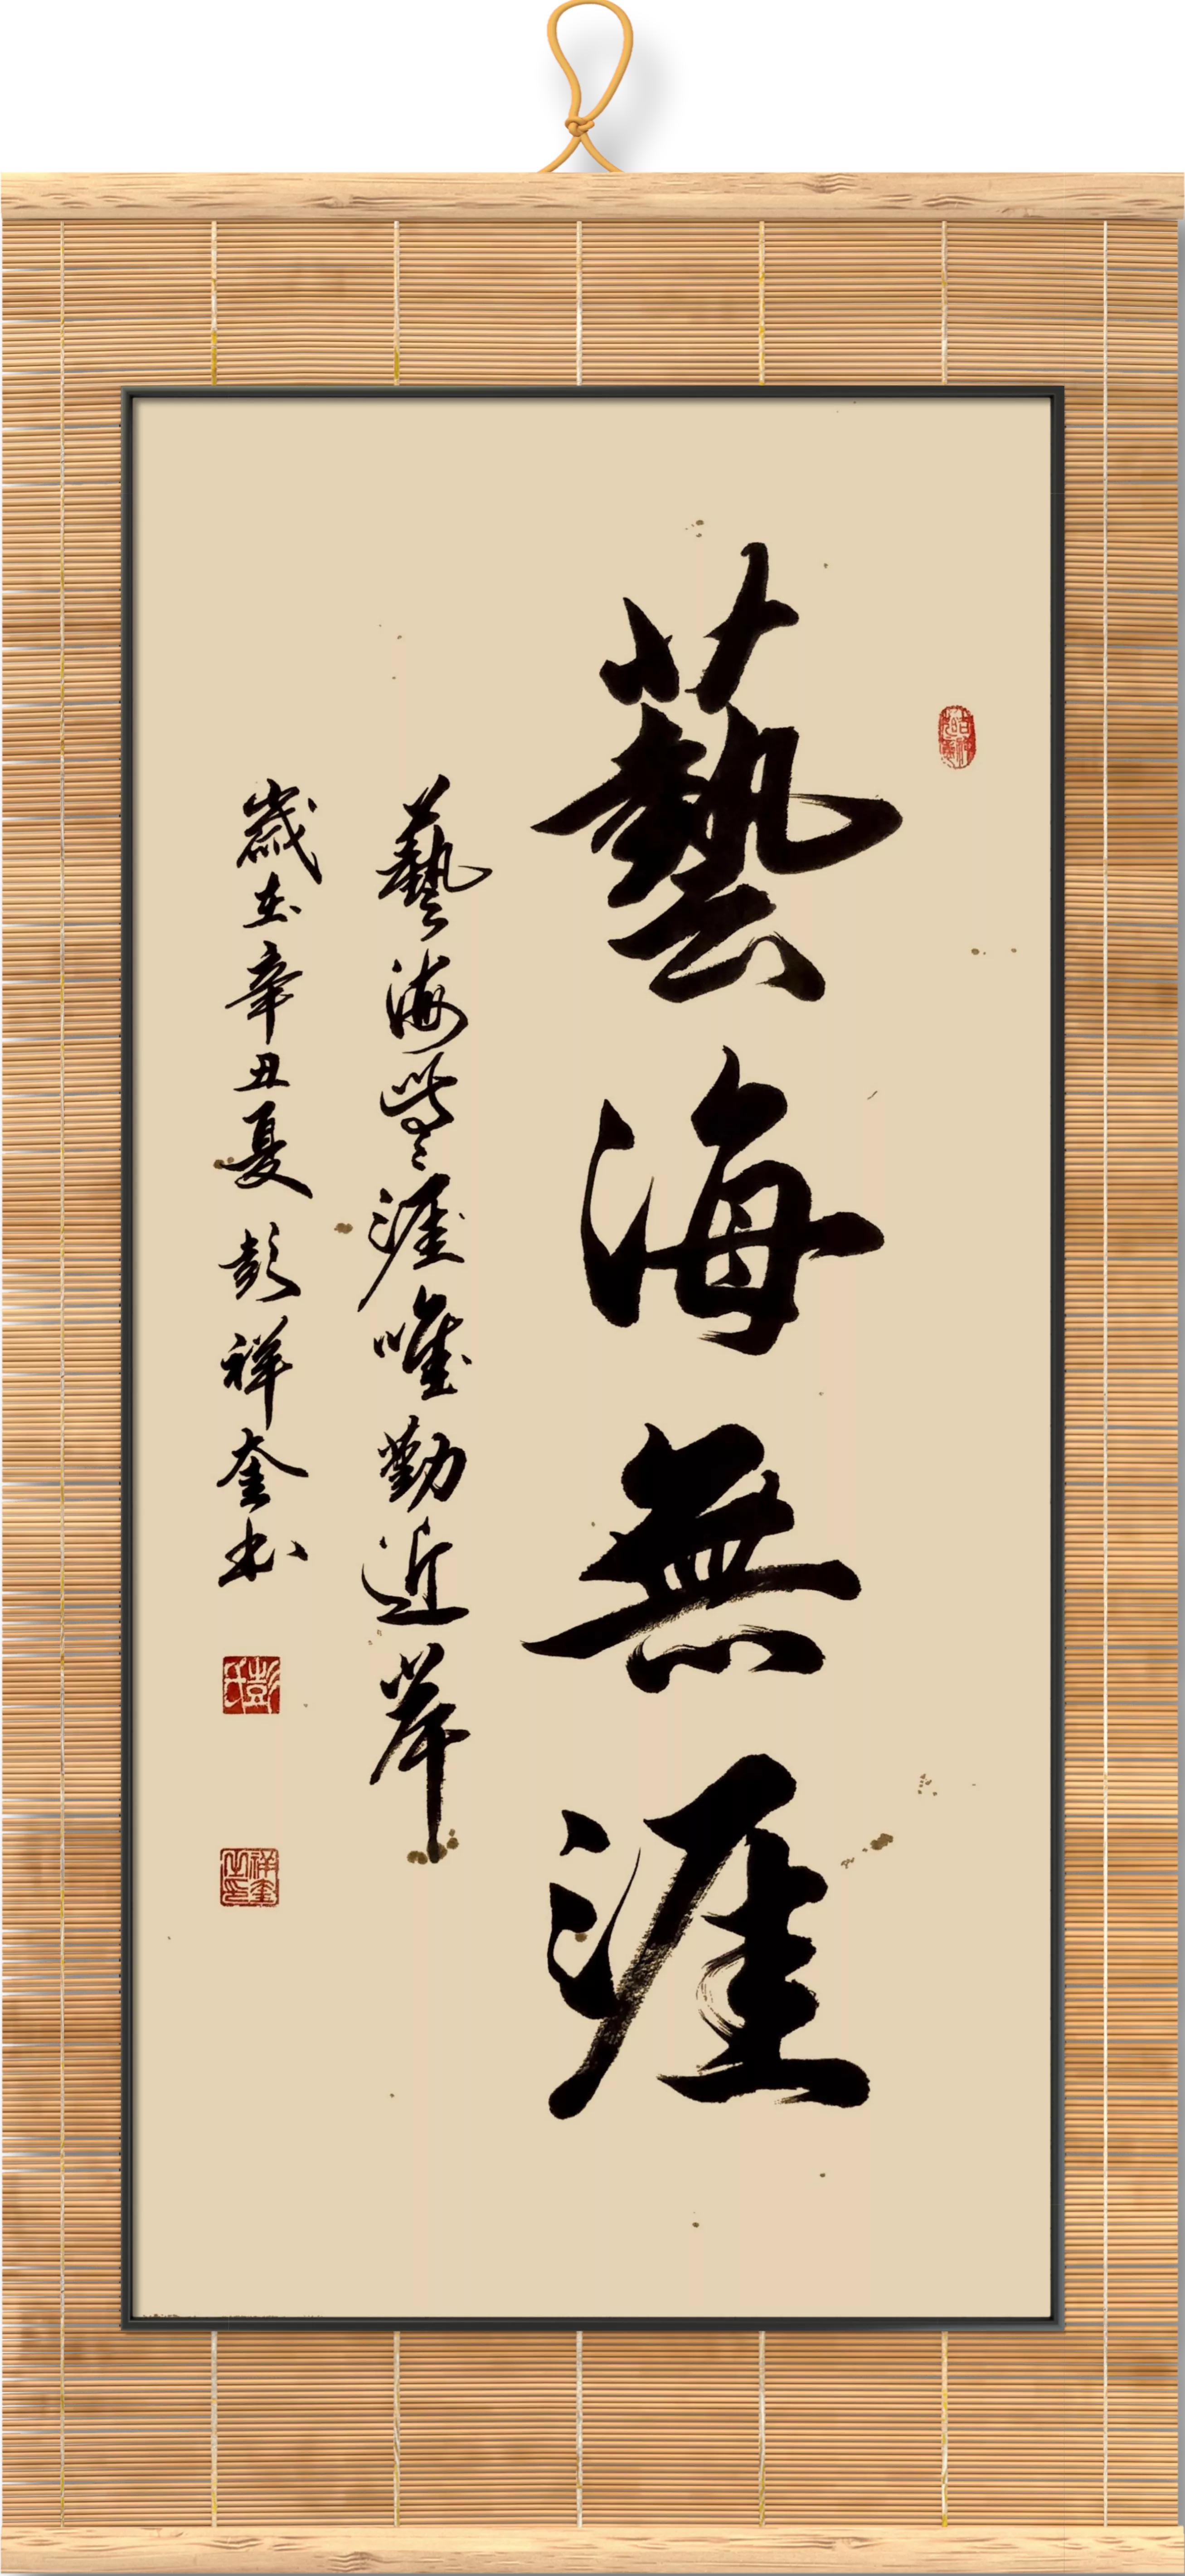 藝海無涯
藝海無涯唯勤近岸
歲在辛丑夏彭祥奎書
彭氏
祥奎之印